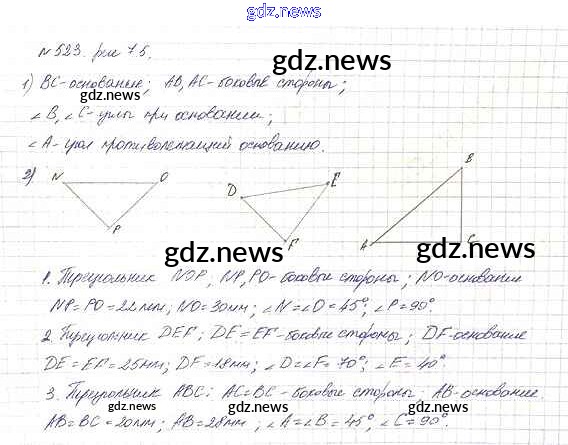 gdz.news
№ 523. рис 7.5.
gdz.news
1) BC-основание; AB, AC-боковые стороны;
gdz.news gdz.news
∠B, ∠C-углы при основании;
∠A-угол противолежащий основанию.
2) N O D E B
P F A C
gdz.news gdz.news
1. Треугольник NOP; NP, PO-боковые стороны; NO-основание
NP=PO=22мм; NO=30мм; ∠N=∠O=45°; ∠P=90°.
gdz.news
2. Треугольник DEF; DE=EF-боковые стороны; DF-основание
DE=EF=25мм; DF=18мм; ∠D=∠F=70°; ∠E=40°.
3. Треугольник ABC: AC=BC-боковые стороны; AB-основание.
gdz.news gdz.news
AB=BC=20мм; AB=28мм; ∠A=∠B=45°; ∠C=90°.